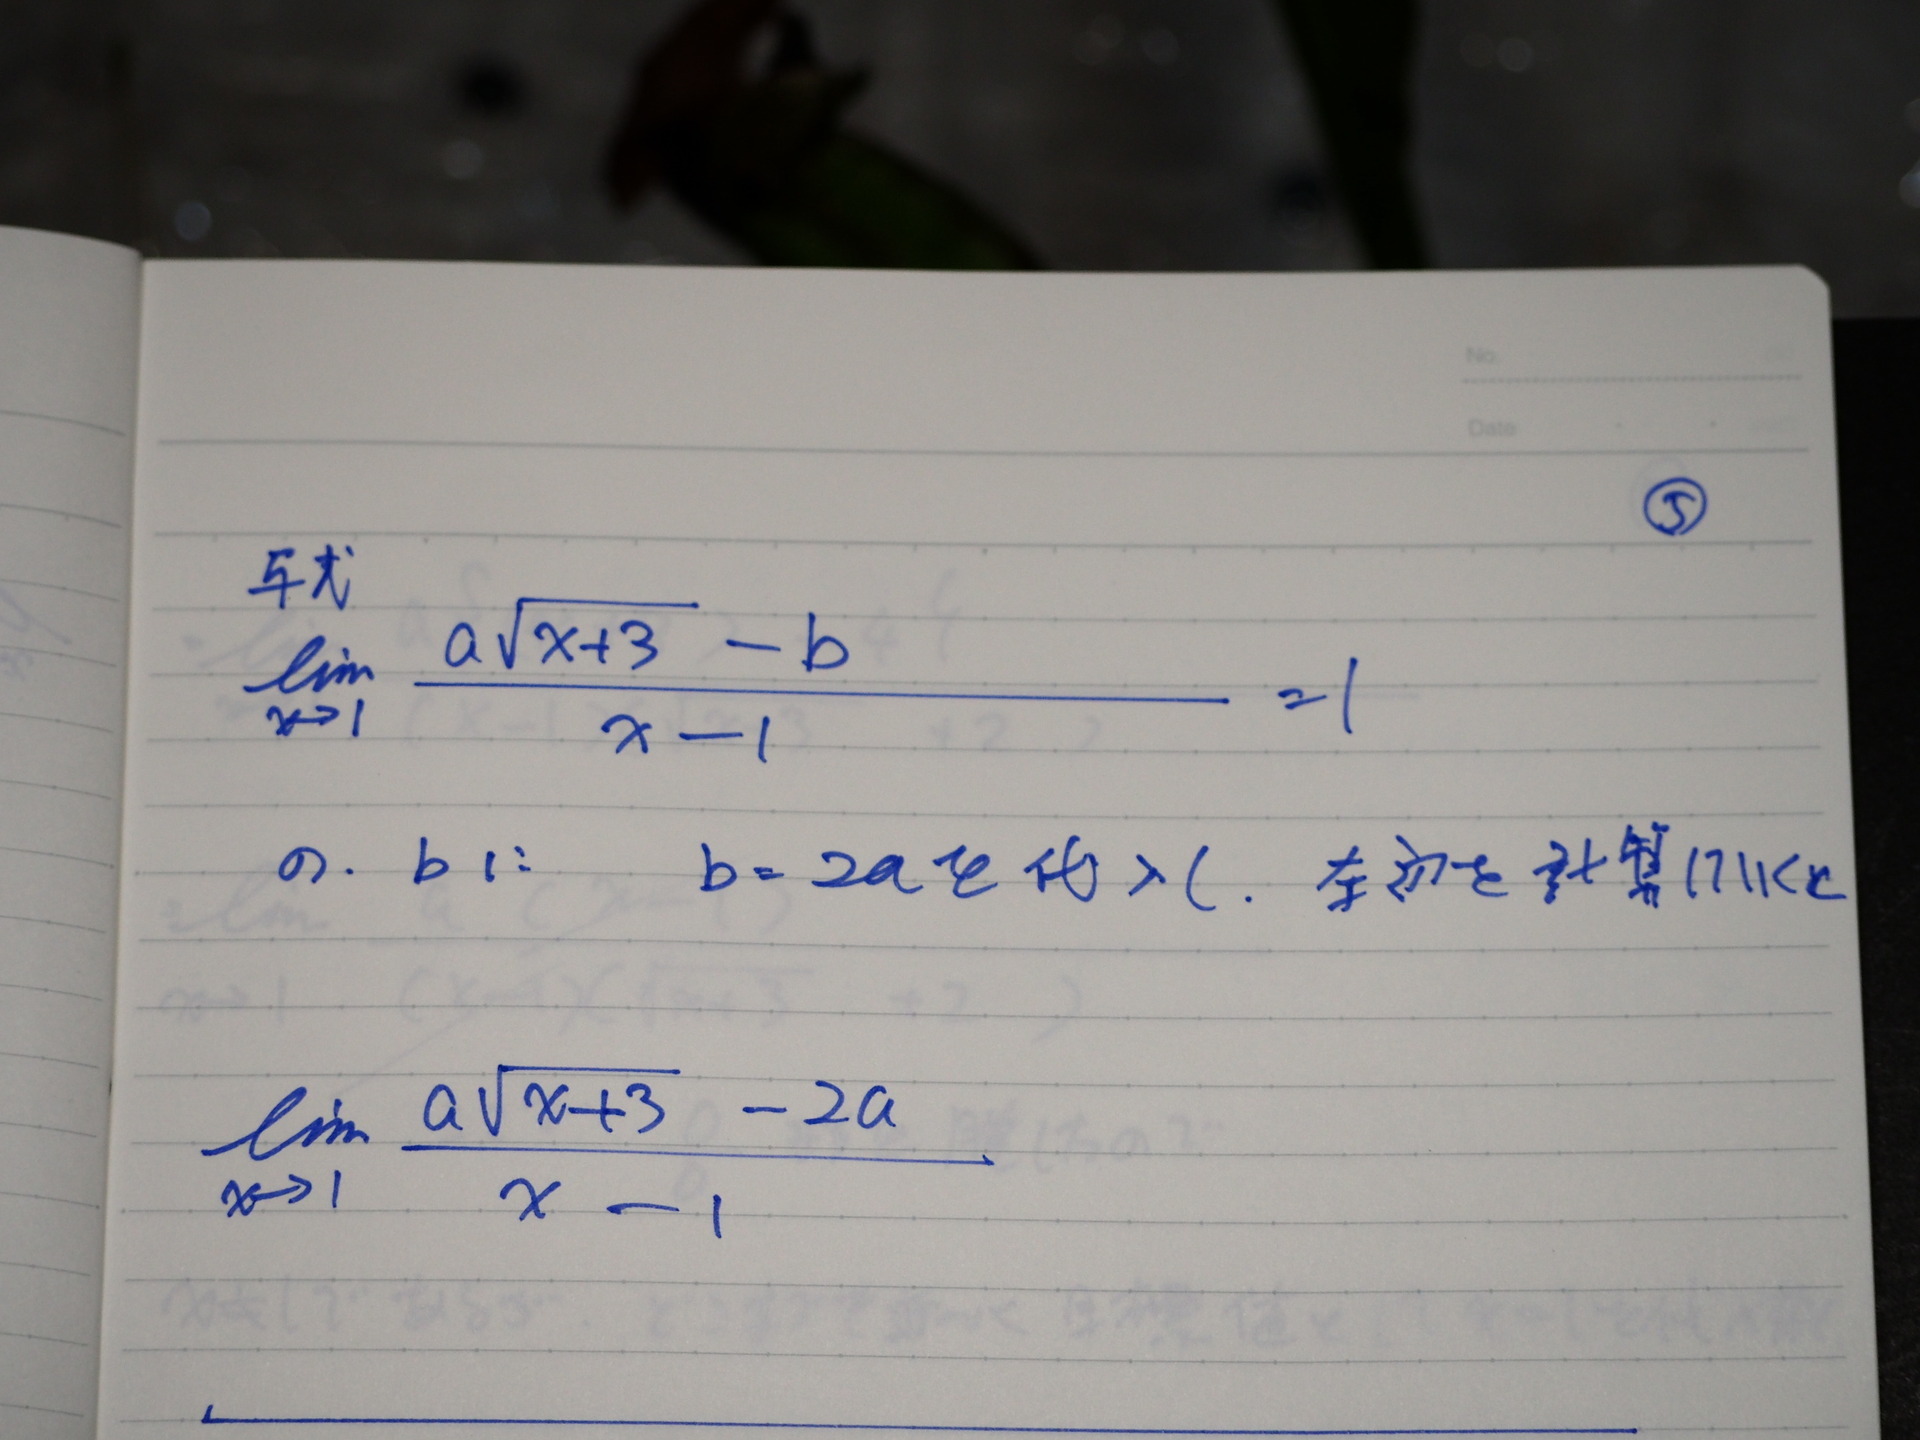 No.
Date
⑤
与式
lim x→1 (a√(x+3) − b)/(x − 1) = 1
の. bに b = 2aを代入し. 左辺を計算していくと
lim x→1 (a√(x+3) − 2a)/(x − 1)